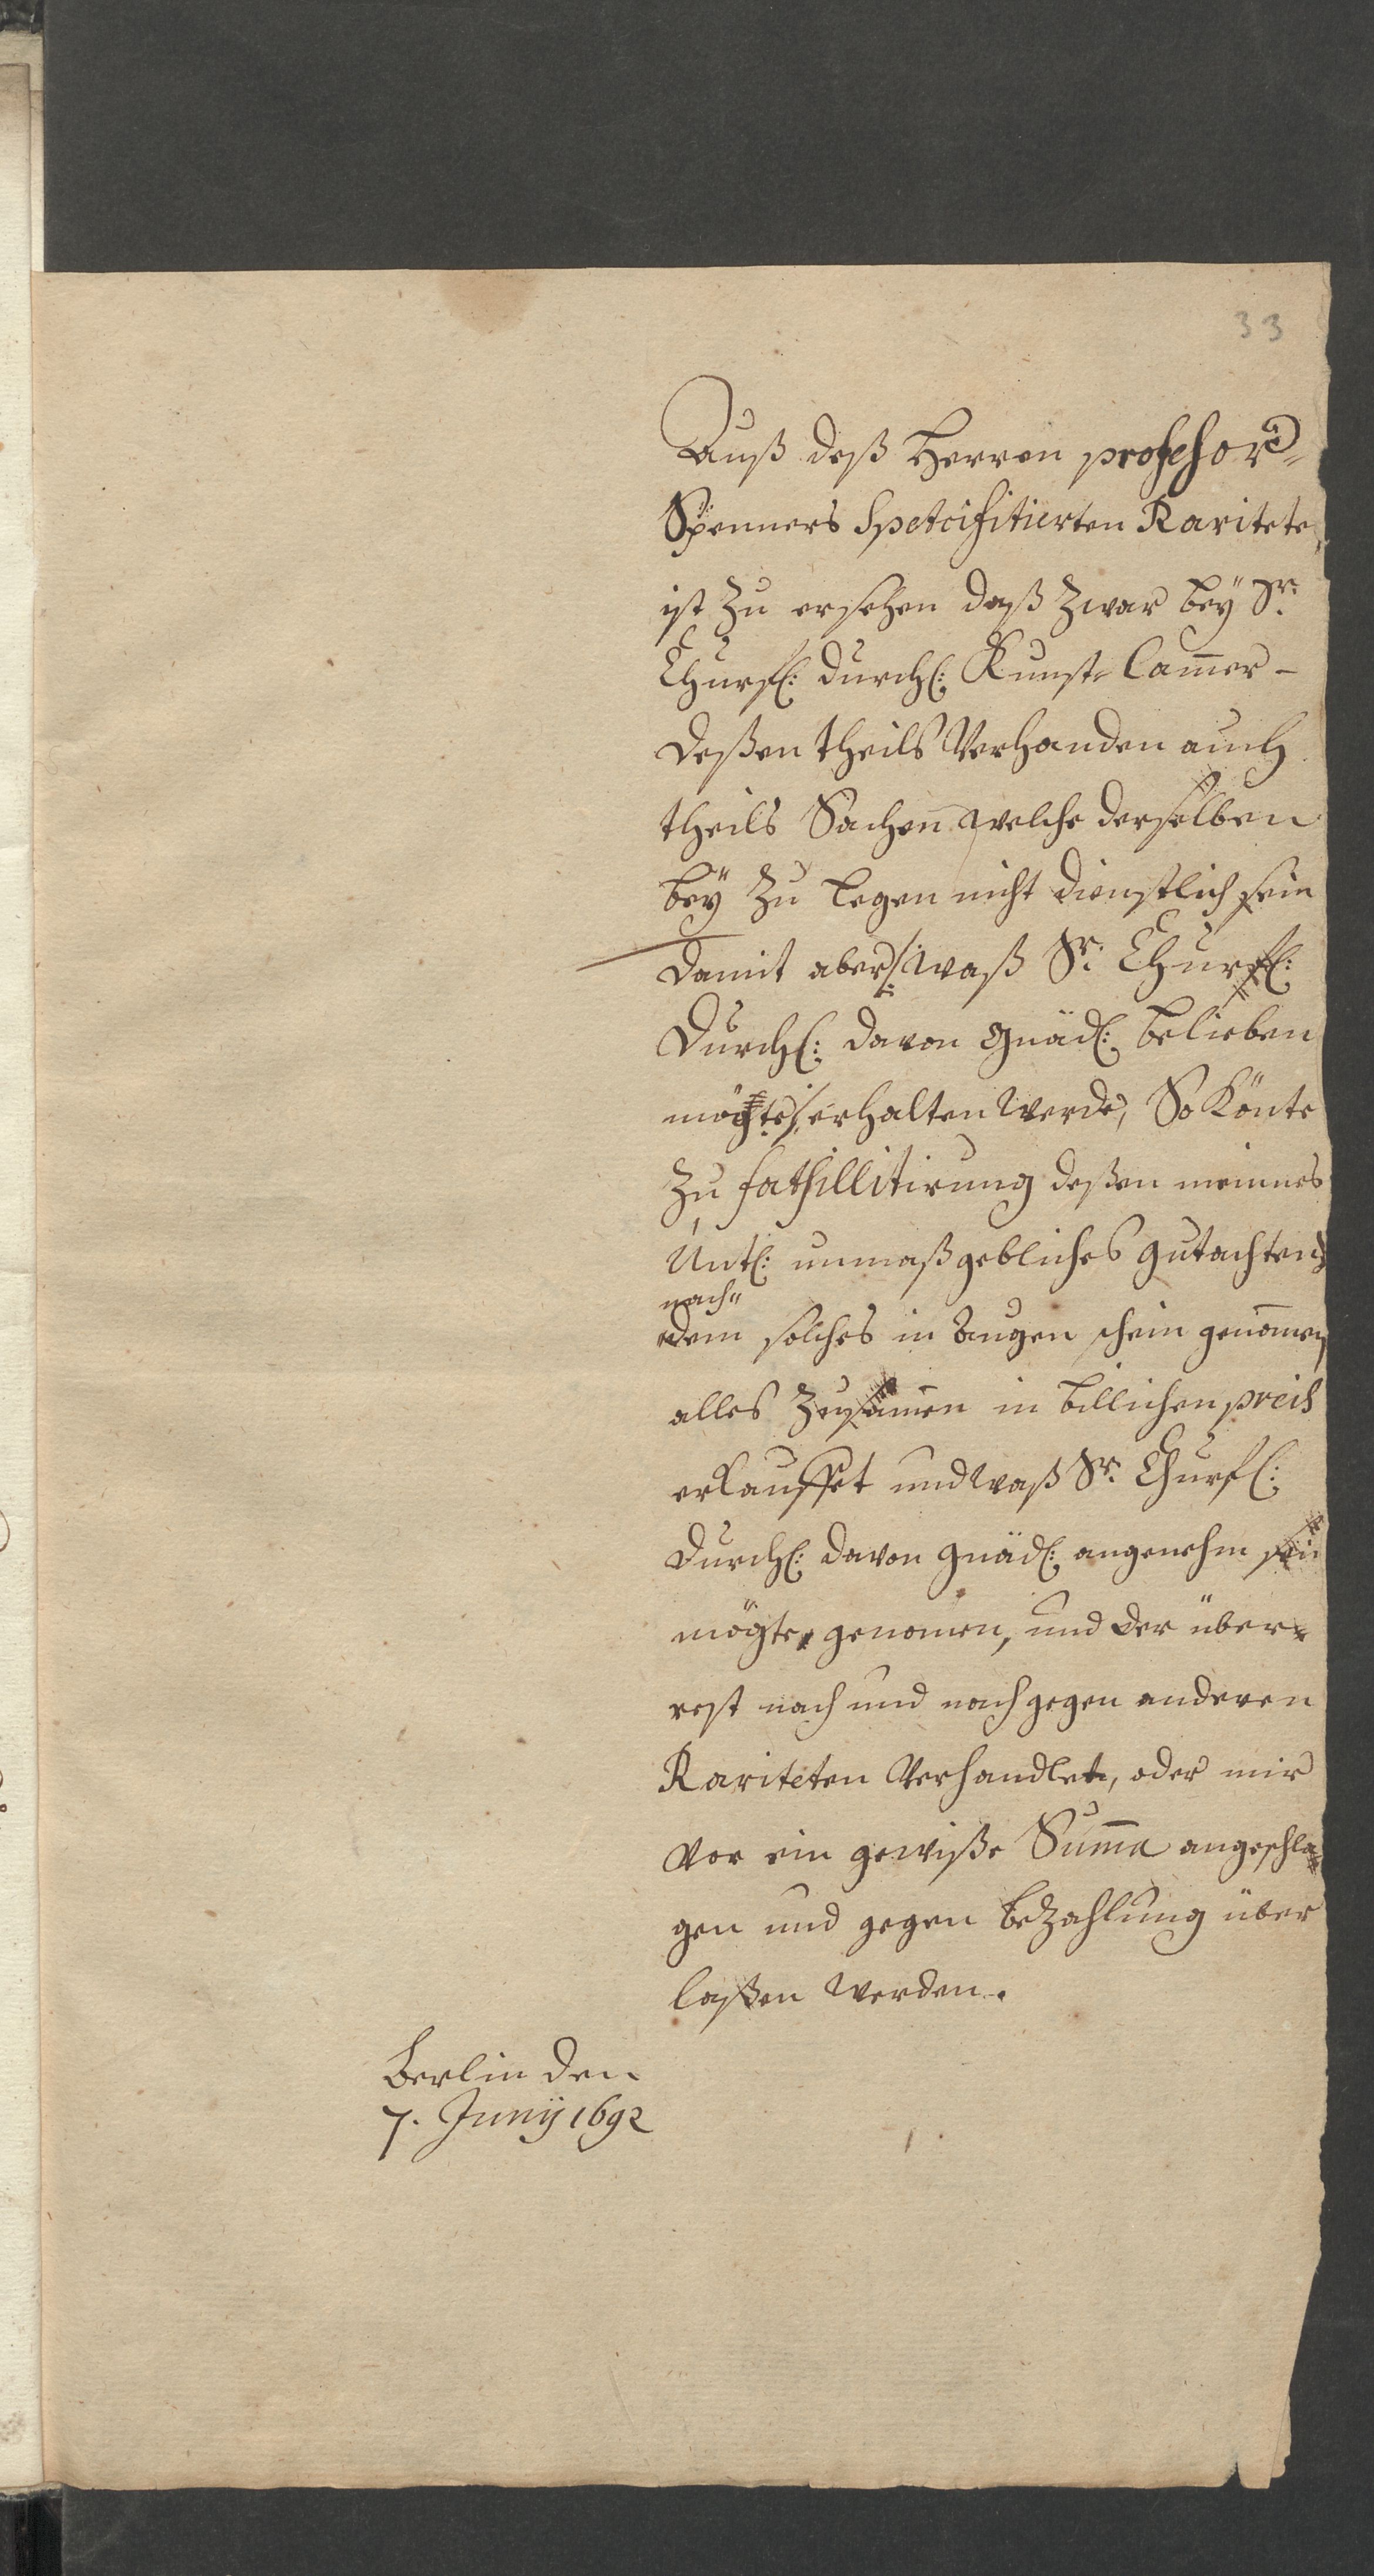 33
Auß deß Herren profeßor
Spenners Spetcifitierten Raritete
ist zu ersehen daß zwar beÿ Sr:
Churfl: Durchl: Kunst-Cam̄er-
deßen theils Verhanden auch
theils Sachen welche derselben
beÿ zu legen nicht dienstlich sein
damit aber /: waß Sr: Churfl:
Durchl: davon gnädl: belieben
mögte :/ erhalten werde, So könte
zu fathillitirung deßen meinnes
Untl: unmaßgebliches gutachten
nach"
dem solches in augen schein genom̄en
alles zusam̄en in billichen preiß
erkauffet und waß Sr: Churfl:
Durchl: davon gnädl: angenehm sein
mögte, genom̄en, und der über=
rest nach und nach gegen anderen
Rariteten Verhandlet, oder mir
vor ein gewiße Sum̄a angeschla=
gen und gegen bezahlung über
laßen werden.
Berlin den
7. Junÿ 1692